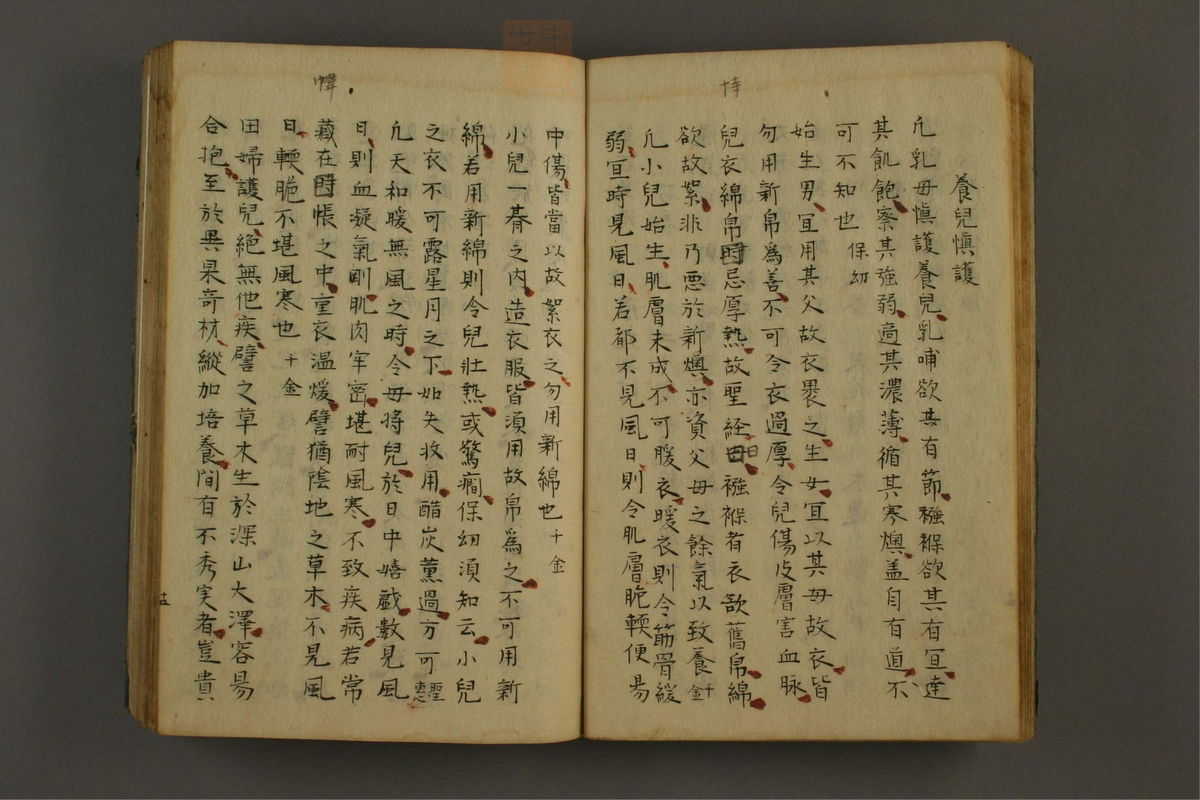 養兒愼護
凢乳母愼護養兒乳哺欲其有節襁褓欲其有宜達
其飢飽察其強弱適其濃薄循其寒燠盖自有道不
可不知也 保幼
始生男宜用其父故衣褁之生女宜以其母故衣皆
勿用新帛爲善不可令衣過厚令兒傷皮膚害血脉
兒衣綿帛時忌厚熱故聖経曰襁褓者衣欲舊帛綿
欲故絮非乃悪於新燠亦資父母之餘氣以致養 千金
凢小兒始生肌膚未成不可暖衣暖衣則令筋骨緩
弱宜時見風日若都不見風日則令肌膚脆軟便易
中傷皆當以故絮衣之勿用新綿也 千金
小兒一朞之内造衣服皆須用故帛爲之不可用新
綿若用新綿則令兒壮熱或驚癇保幼須知云小兒
之衣不可露星月之下如失收用醋炭薫過方可
凢天和暖無風之時令母將兒於日中嬉戯數見風
日則血凝氣剛肌肉牢密堪耐風寒不致疾病若常
藏在幃帳之中重衣温煖譬猶陰地之草木不見風
日軟脆不堪風寒也 千金
田婦護兒絶無他疾譬之草木生於深山大澤容易
合抱至於異果奇材縱加培養間有不秀実者豈貴
幃
時